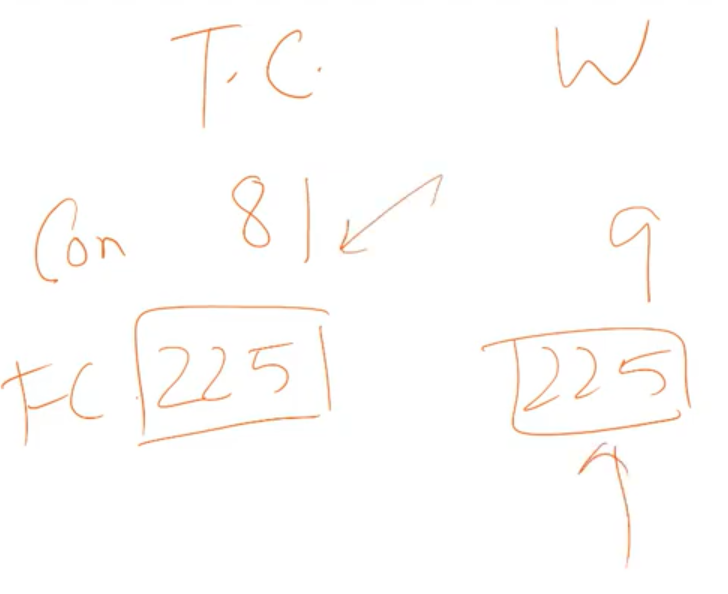 T.C. W
Con 81 9
FC 225 225